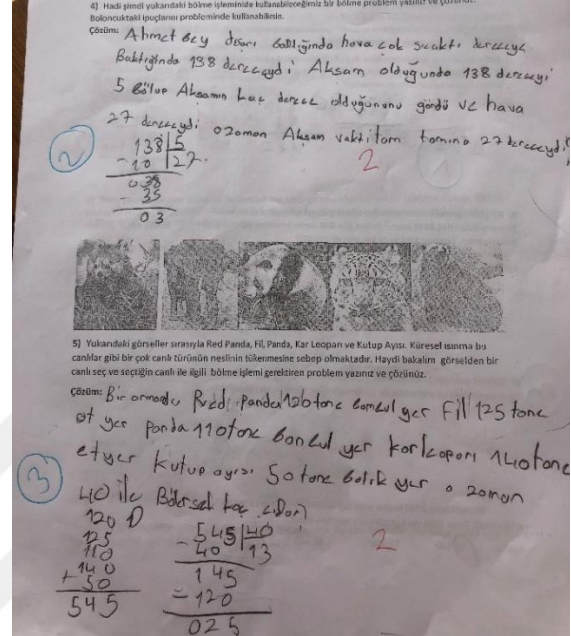 4) Hadi şimdi yukarıdaki bölme işleminide kullanabileceğimiz bir bölme problem yazınız ve çözünüz.
Baloncuktaki ipuçlarını probleminde kullanabilirsin.
Çözüm: Ahmet Bey dışarı baktığında hava çok sıcaktı dereceye
Baktığında 138 derceydi Akşam olduğunda 138 dereceyi
5 Bölüp Akşamın kaç derece olduğununu gördü ve hava
27 dereceydi o zaman Akşam vakti tam tamına 27 dereceydi
2
138 5
- 10 27
038
- 35
03
2
5) Yukarıdaki görseller sırasıyla Red Panda, Fil, Panda, Kar Leoparı ve Kutup Ayısı. Küresel ısınma bu
canlılar gibi bir çok canlı türünün neslinin tükenmesine sebep olmaktadır. Haydi bakalım görselden bir
canlı seç ve seçtiğin canlı ile ilgili bölme işlemi gerektiren problem yazınız ve çözünüz.
Çözüm: Bir ormanda Red panda 120 tane bambul yer Fil 125 tane
ot yer panda 110 tane bambul yer karleoparı 140 tane
et yer kutup ayısı 50 tane balık yer o zaman
3
40 ile Bölersek kaç
120
125
110
140
+ 50
545
545 40
- 40 13
145
- 120
025
2